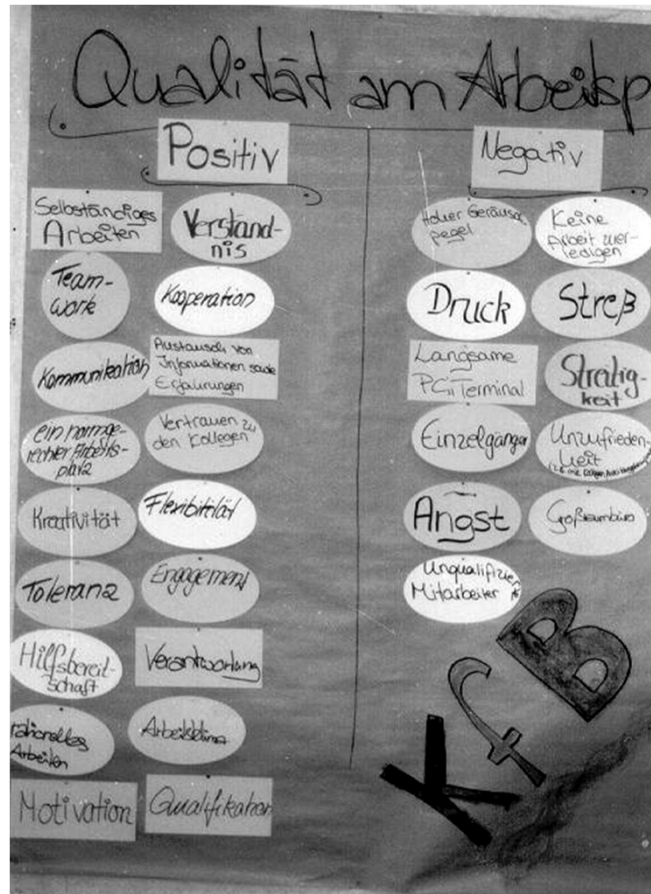 Qualität am Arbeitsp
Positiv
Selbständiges
Arbeiten
Verständ-
nis
Team-
work
Kooperation
Kommunikation
Austausch von
Informationen sowie
Erfahrungen
ein normge-
rechter Arbeits-
platz
Vertrauen zu
den Kollegen
Kreativität
Flexibilität
Toleranz
Engagement
Hilfsbereit-
schaft
Verantwortung
rationelles
Arbeiten
Arbeitsklima
Motivation
Qualifikation
Negativ
Hoher Geräusch
pegel
Keine
Arbeit zu er-
ledigen
Druck
Streß
Langsame
PC's Terminal
Streitig-
keit
Einzelgänger
Unzufrieden-
heit
Angst
Großraumbüro
Unqualifizier
Mitarbeiter
KfB